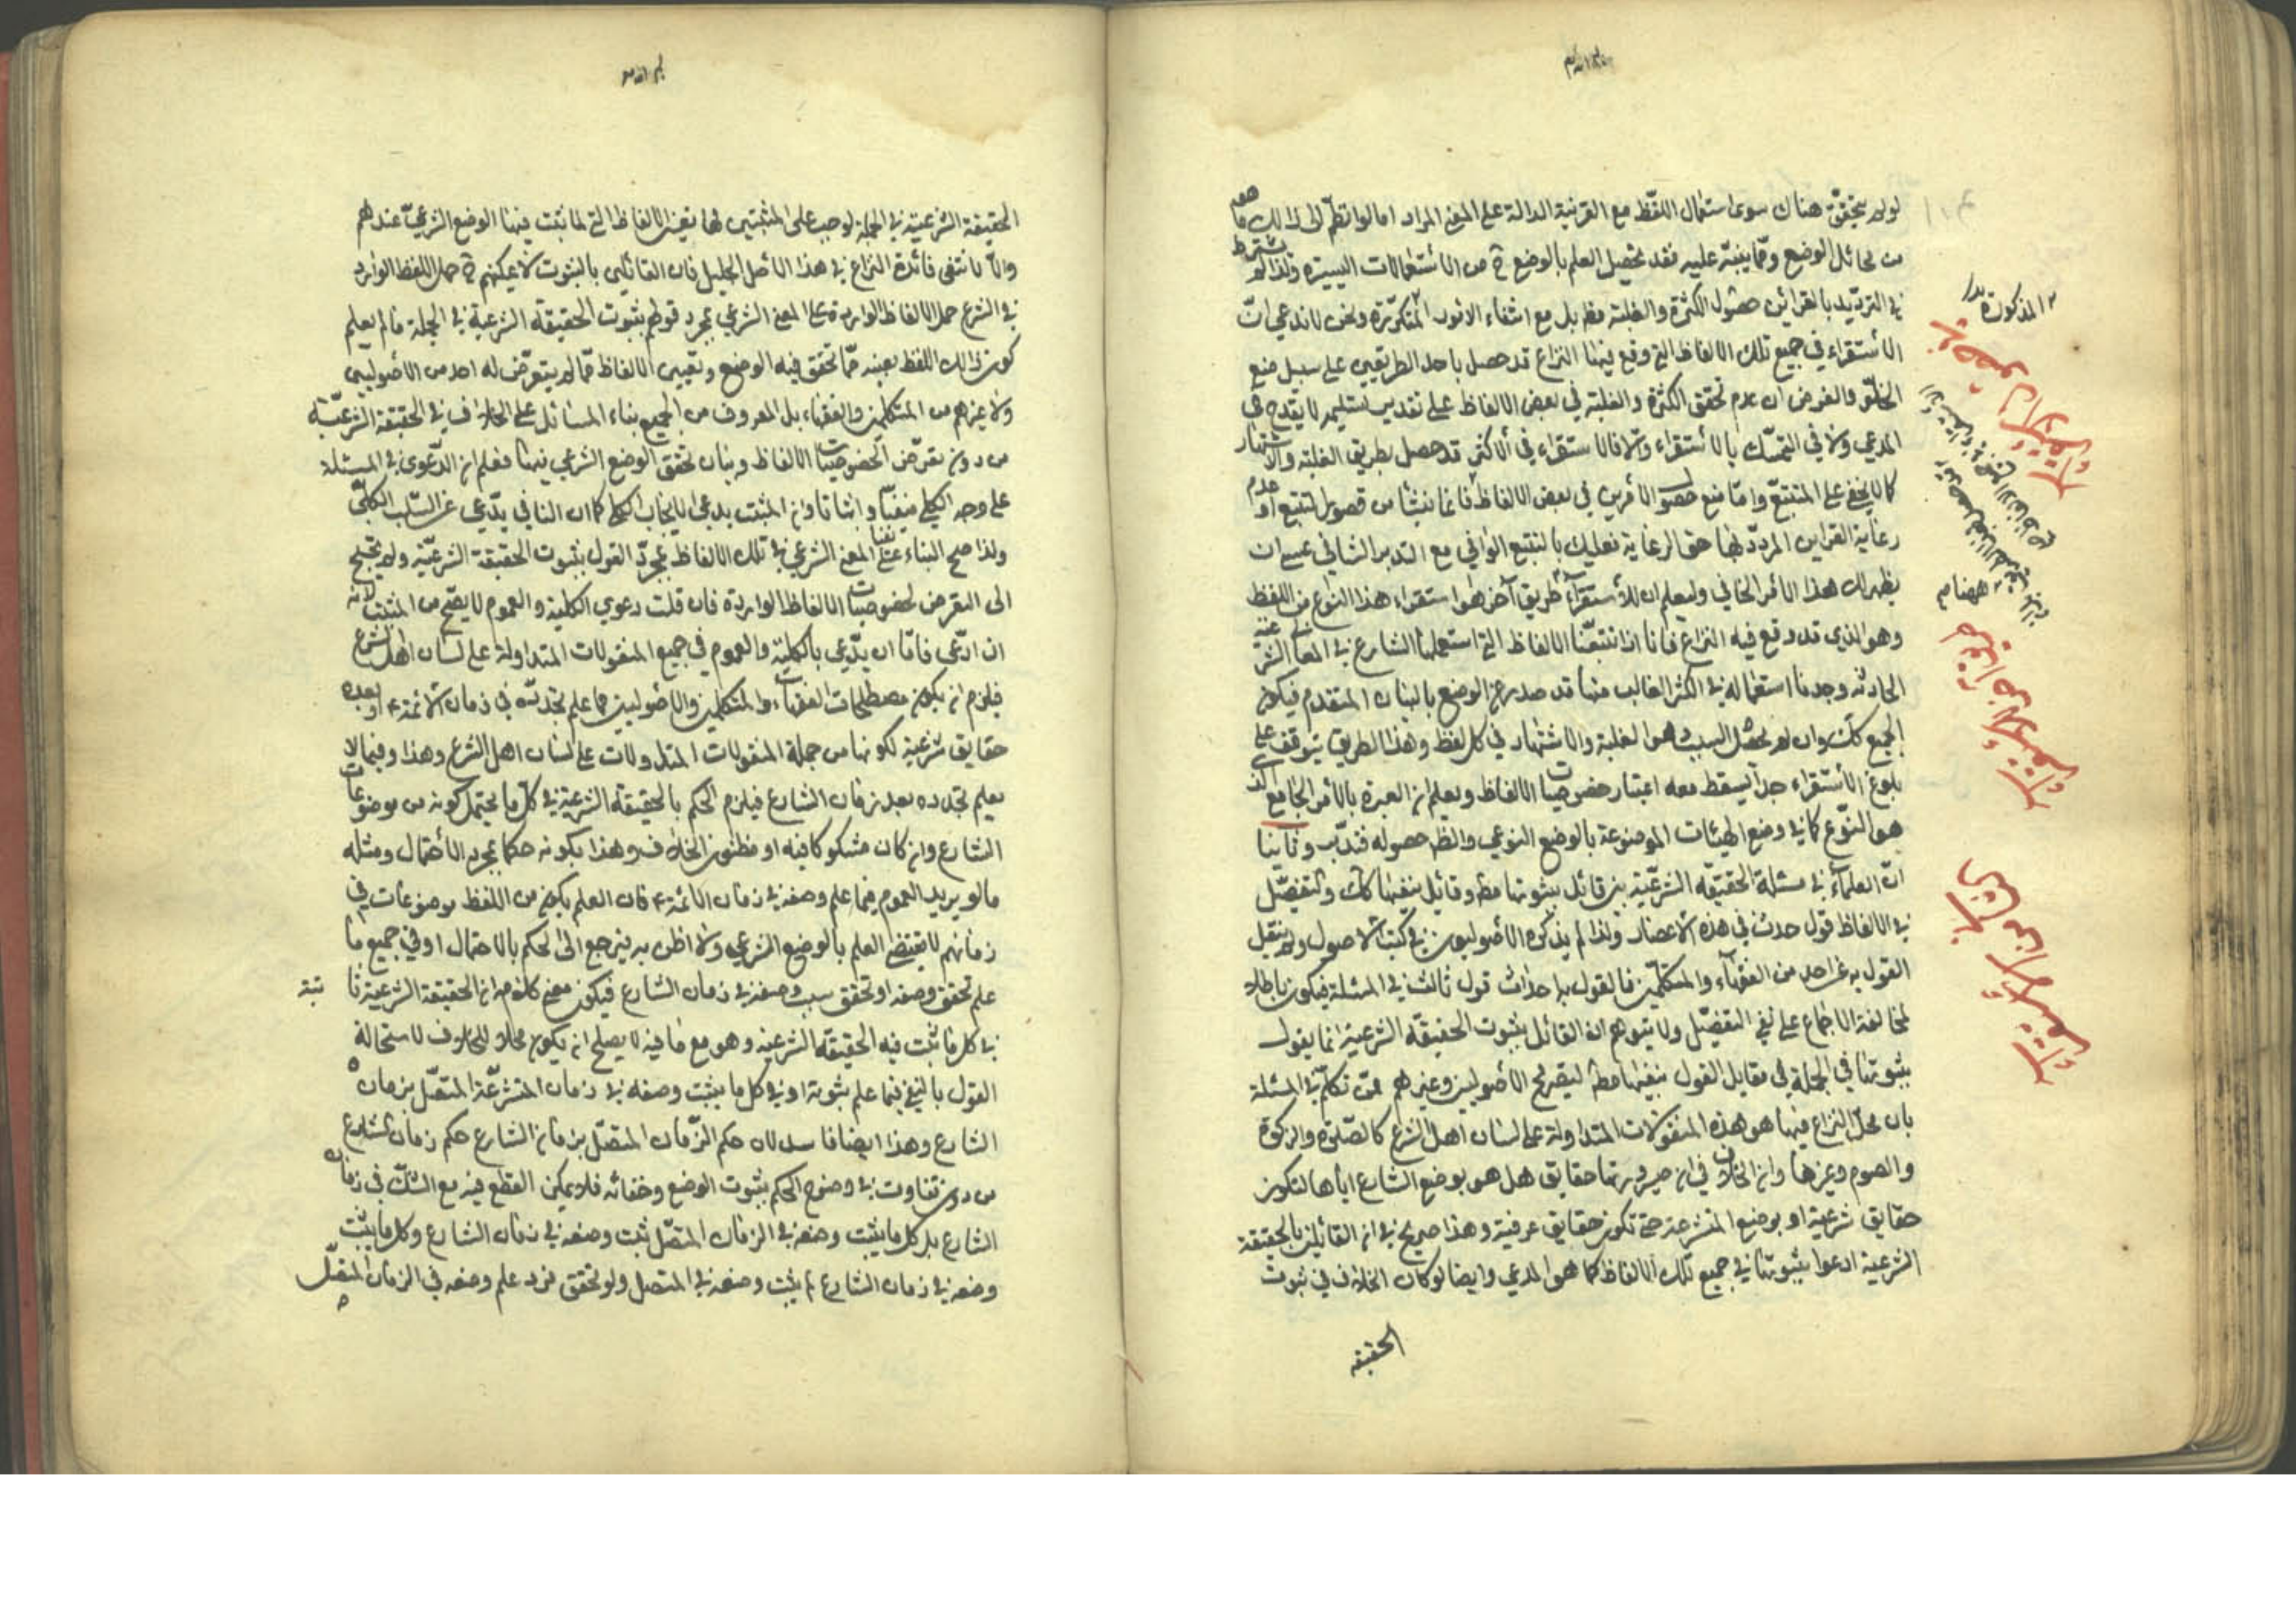 لو لم يتحقق هناك سوى استعمال اللفظ مع القرينة الدالة على المعنى المراد اما لو انضم الى ذلك ما هو
من دلائل الوضع ومما ينبّه عليه فقد يحصل العلم بالوضع ح من الأستعمالات اليسيرة ولذا لم يشترط
في الترديد بالقرائن حصول الكثرة والغلبة مط بل مع انتفاء المتكررة ونحن لا ندعي انّ
الأستقراء في جميع تلك الالفاظ التي وقع فيها النزاع قد حصل باحد الطريقين على سبيل منع
الخلوّ فالغرض ان عدم تحقق الكثرة والغلبة في بعض الالفاظ على تقدير تسليمه لا يقدح في
المدعي ولا في التمسّك بالأستقراء والّا فالاستقراء في الأكثر قد حصل بطريق الغلبة والاشتهار
كما لا يخفى على المتتبّع وامّا منع حصول الأمرين في بعض الالفاظ فانما ينشأ من قصور التتبع او عدم
رعاية القراين المردّد لها حق الرعاية فعليك بالتتبع الوافي مع التدبر الشافي عسى ان
يظهر لك هذا الأمر الخافي وليعلم ان للأستقرآء طريقا آخر هو استقراء هذا النوع من اللفظ
وهو الذي قد وقع فيه النزاع فانا اذا تتبعّنا الالفاظ التي استعملها الشارع في المعاني الشرعية
الحادثه وجدنا استعماله في اكثر الغالب منها قد صدر عن الوضع بالبيان المتقدم فيكون
الجميع كك وان لم يحصل السبب وهو الغلبة والاشتهار في كل لفظ وهذا الطريق يتوقف على
بلوغ الأستقراء حداً يسقط معه اعتبار خصوصيات الالفاظ ويعلم ان العبرة بالأمر الجامع الذي
هو النّوع كما في وضع الهيئات الموضوعة بالوضع النوعي والظ حصوله فتدبّر وثانيا
انّ العلماء في مسئلة الحقيقة الشرعيّة بين قائل بثبوتها مط وقائل بنفيها كك والتفصّيل
في الالفاظ قول حدث في هذه الأعصار ولذا لم يذكره الأصوليون في كتب الأصول ولم ينقل
القول به عن احد من الفقهآء والمتكلّمين فالقول به احداث قول ثالث في المسئلة فيكون باطلا
لمخالفة الاجماع على نفي التفصّيل ولا يتوهم ان القائل بثبوت الحقيقّة الشرعية انما يقول
بثبوتها في الجملة في مقابل القول بنفيها مط لتصريح الأصوليين وغيرهم ممّن تكلّم في المسئلة
بان محلّ النزاع فيها هو هذه المنقولات المتداولة على لسان اهل الشرع كالصّلوة والزكوة
والصوم وغيرها وان الخلاف في ان صيرورتها حقايق هل هو بوضع الشارع اياها لتكون
حقايق شرعية او بوضع المتشرعة حتى تكون حقايق عرفية وهذا صريح في ان القائلين بالحقيقة
الشرعية ادعوا بثبوتها في جميع تلك الالفاظ كما هو المدعي وايضا لو كان الخلاف في ثبوت
الحقيقه
المذكورة
الحقيقة الشرعية في الجملة لوجب على المثبتين لها تعيين الالفاظ التي ثبت فيها الوضع الشرعيّ عندهم
والّا لانتفى فائدة النزاع في هذا الأصل الجليل فان القائلين بالثبوت لا يمكنهم ح حمل اللفظ الوارد
في الشرع حمل الالفاظ الواردة على المعنى الشرعي بمجرد قولهم بثبوت الحقيقة الشرعية في الجملة ما لم يعلم
كون ذلك اللفظ بعينه ممّا تحقق فيه الوضع وتعيين الالفاظ ممّا لم يتعرّض له احد من الأصوليين
ولا غيرهم من المتكلمين والفقهاء بل المعروف من الجميع بناء المسائل على الخلاف في الحقيقة الشرعيّة
من دون تعرّض لخصوصيّات الالفاظ وبيان تحقق الوضع الشرعي فيها فعلم ان الدّعوى في المسئلة
على وجه الكلي نفيا واثباتا وان المثبت يدعي الايجاب الكلي كما ان النافي يدّعي السّلب الكلّيّ
ولذا صح البناء على المعنى الشرعي في تلك الالفاظ بمجرّد القول بثبوت الحقيقة الشرعيّة ولم يحتج
الى التعرض لخصوصيات الالفاظ الواردة فان قلت دعوى الكلية والعموم لا يصّح من المثبت لانه
ان ادّعى فامّا ان يدّعي بالكليّة والعموم في جميع المنقولات المتداولة على لسان اهل الشرع
فيلزم ان يكون مصطلحات الفقهاء والمتكلمين والأصوليين مما علم تجدده في زمان الأئمة ع او بعده
حقايق شرعية لكونها من جملة المنقولات المتداولات على لسان اهل الشرع وهذا وفيما لا
يعلم تجدده بعد زمان الشارع فيلزم الحكم بالحقيقة الشرعية في كل ما يحتمل كونه من موضوعات
الشارع وان كان مشكوكا فيه او مظنون الخلاف وهذا يكونه حكما بمجرد الأحتمال ومثله
ما لو يريد العموم فيما علم وضعه في زمان الائمة ع فان العلم بكون من اللفظ موضوعات في
زمانهم لا يقتضي العلم بالوضع الشرعي ولا اظن به فيرجع الى الحكم بالاحتمال او في جميع ما
علم تحقق وضعه او تحقق سبب وضعه في زمان الشارع فيكون معنى كلامهم ان الحقيقة الشرعية ثابتة
في كل ما ثبت فيه الحقيقة الشرعية وهو مع ما فيه لا يصلح ان يكون محلا للخلاف لاستحالة
القول بالنفي فيما علم ثبوته او في كل ما يثبت وضعه في زمان المتشرّعة المتصّل بزمان
الشارع وهذا ايضا فاسد لان حكم الزّمان المتصّل بزمان الشارع حكم زمان الشارع
من دون تفاوت في وضوح الحكم بثبوت الوضع وخفائه فلا يمكن القطع فيه مع الشكّ في زمان
الشارع بل كل ما يثبت وضعه في الزمان المتصّل ثبت وضعه في زمان الشارع وكل ما يثبت
وضعه في زمان الشارع يثبت وضعه في المتصل ولو تحقق فرد علم وضعه في الزمان المتصّل